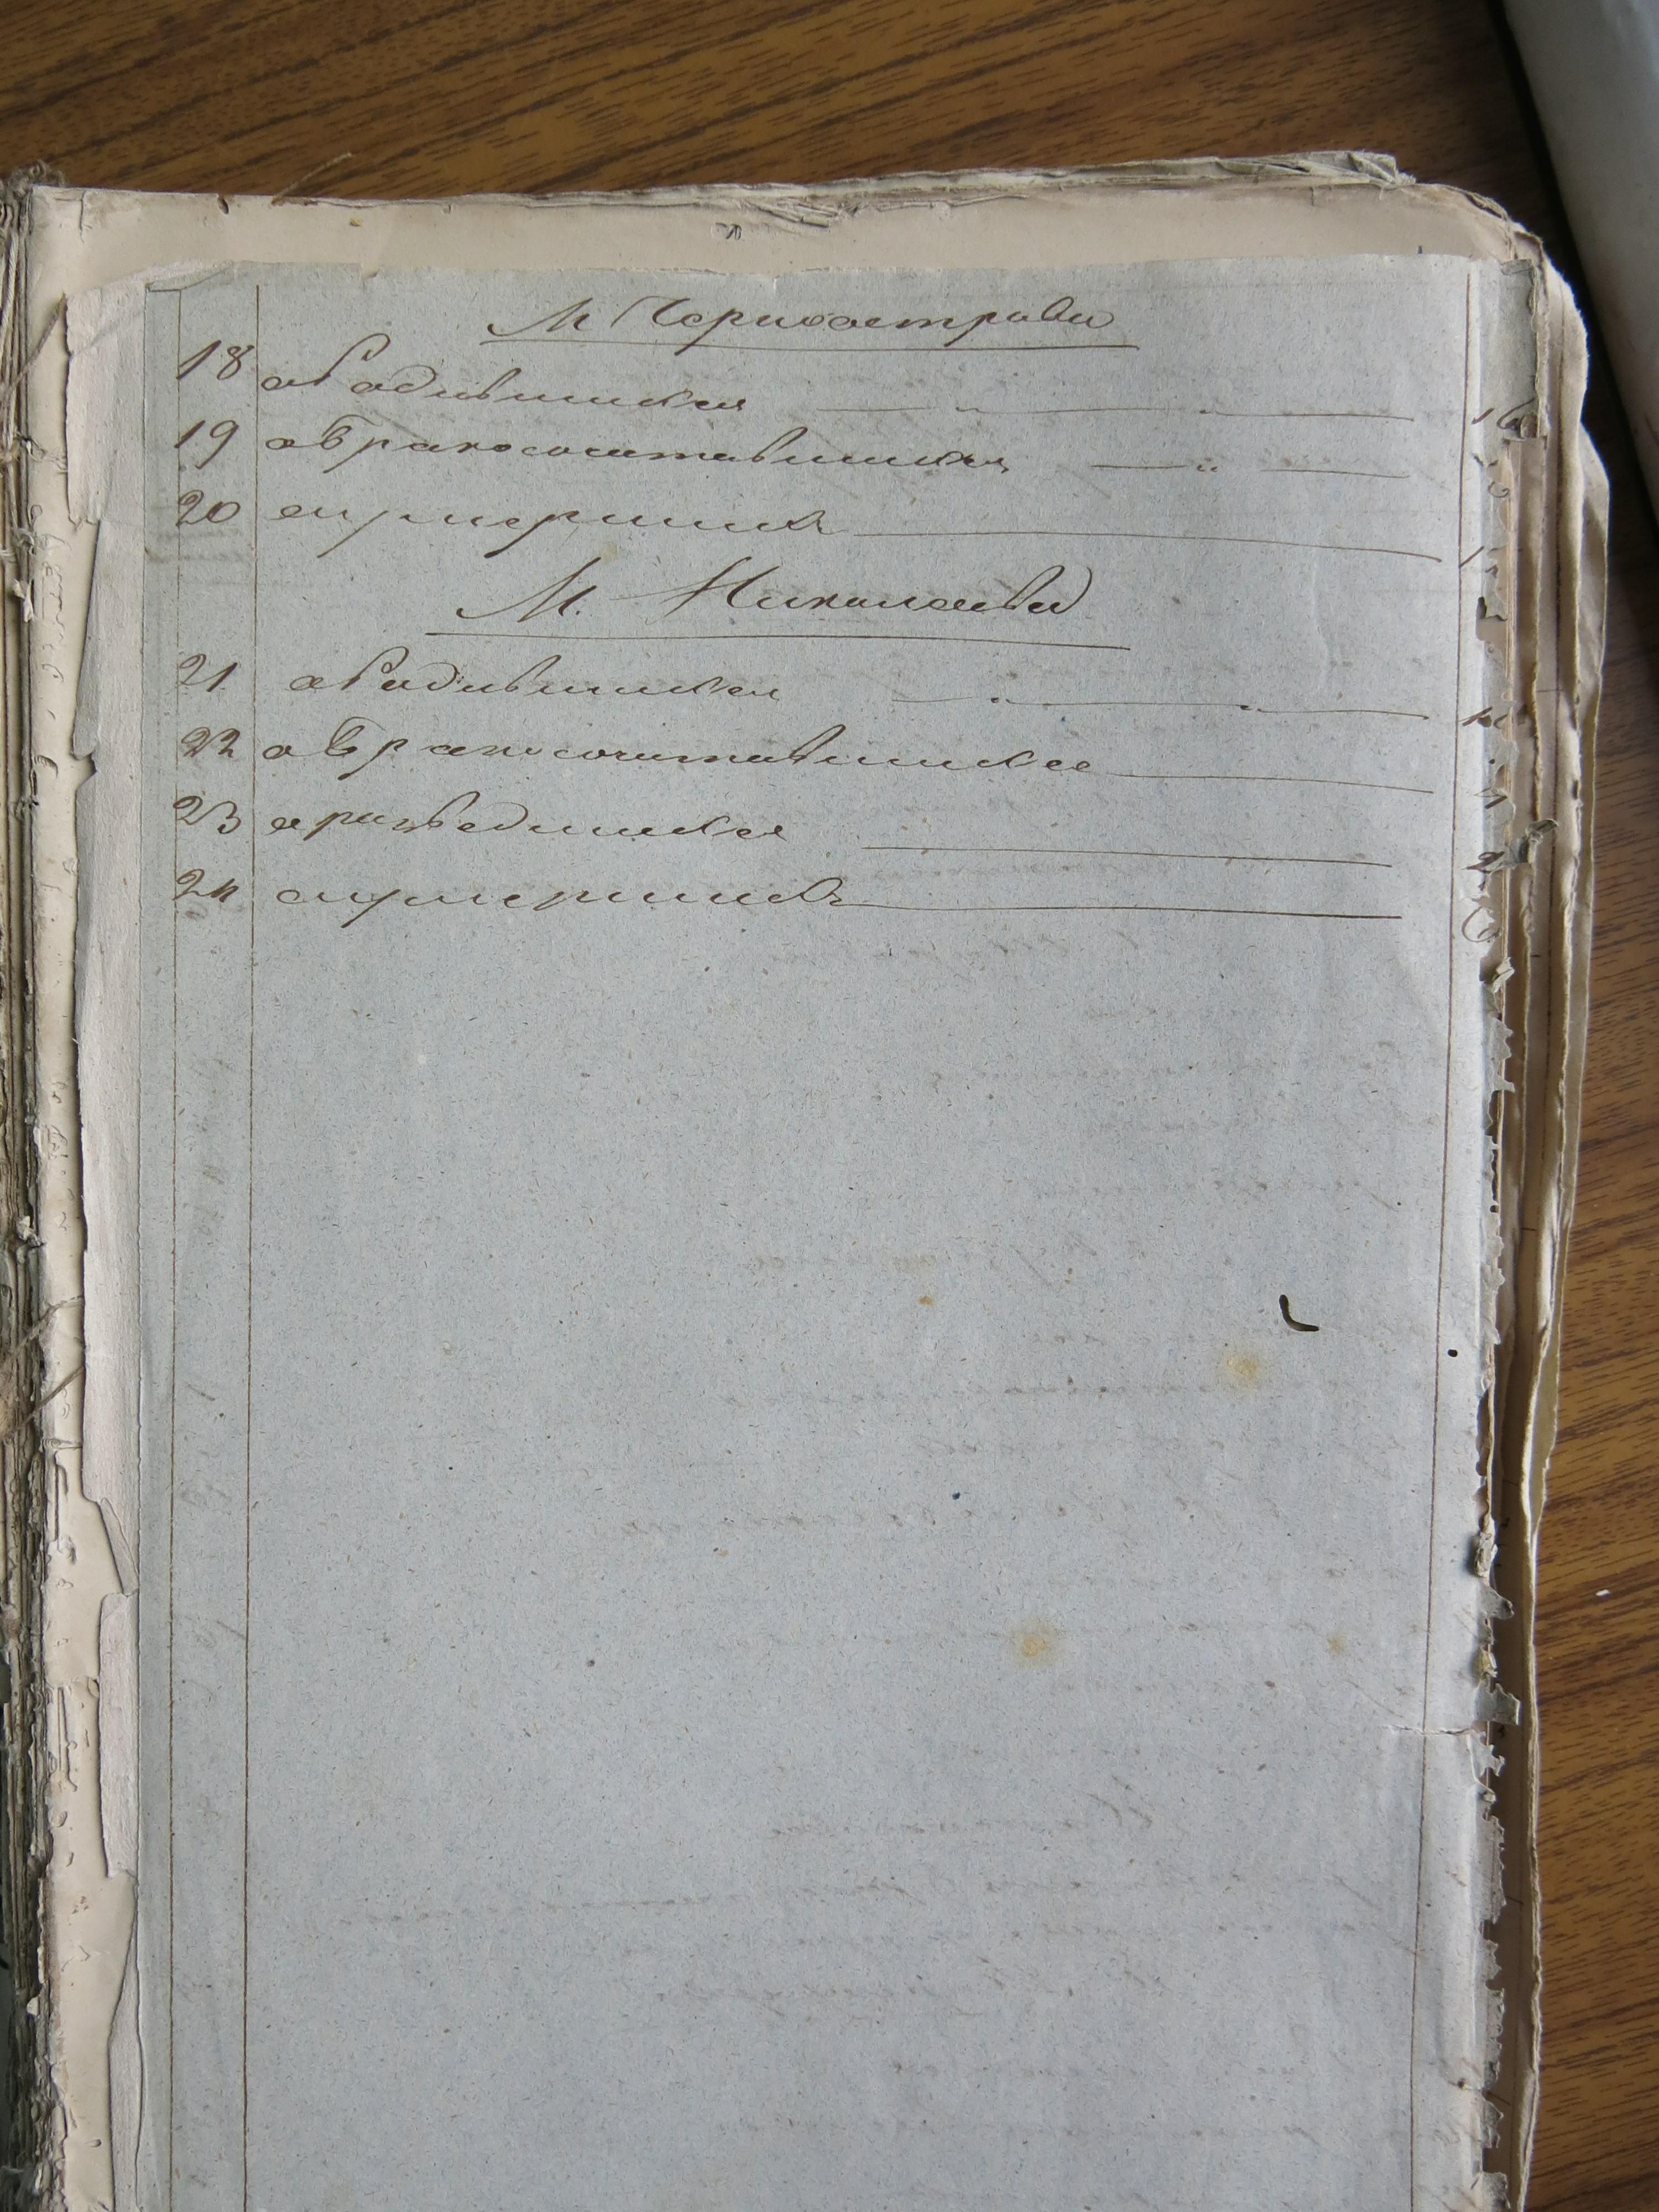 М Черноострова
18 о Родившихся
19 о Бракосочетавшихся
20 о умершихъ
М. Николаева
21 о Родившихся
22 о Бракосочетавшихся
23 о разведшихся
24 о умершихъ